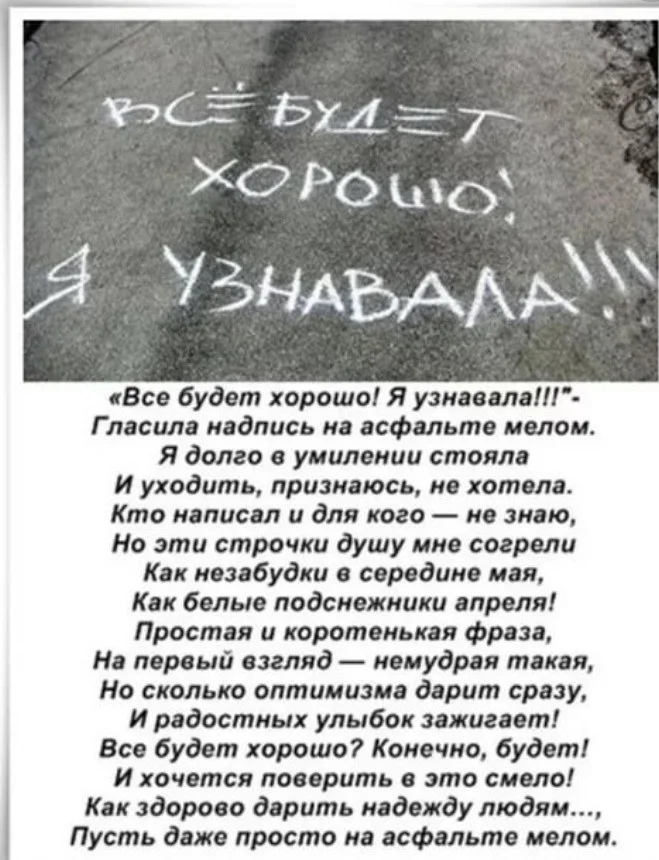 ВСЁ БУДЕТ
ХОРОШО!
Я УЗНАВАЛА!!!
«Все будет хорошо! Я узнавала!!!"-
Гласила надпись на асфальте мелом.
Я долго в умилении стояла
И уходить, признаюсь, не хотела.
Кто написал и для кого — не знаю,
Но эти строчки душу мне согрели
Как незабудки в середине мая,
Как белые подснежники апреля!
Простая и коротенькая фраза,
На первый взгляд — немудрая такая,
Но сколько оптимизма дарит сразу,
И радостных улыбок зажигает!
Все будет хорошо? Конечно, будет!
И хочется поверить в это смело!
Как здорово дарить надежду людям...,
Пусть даже просто на асфальте мелом.